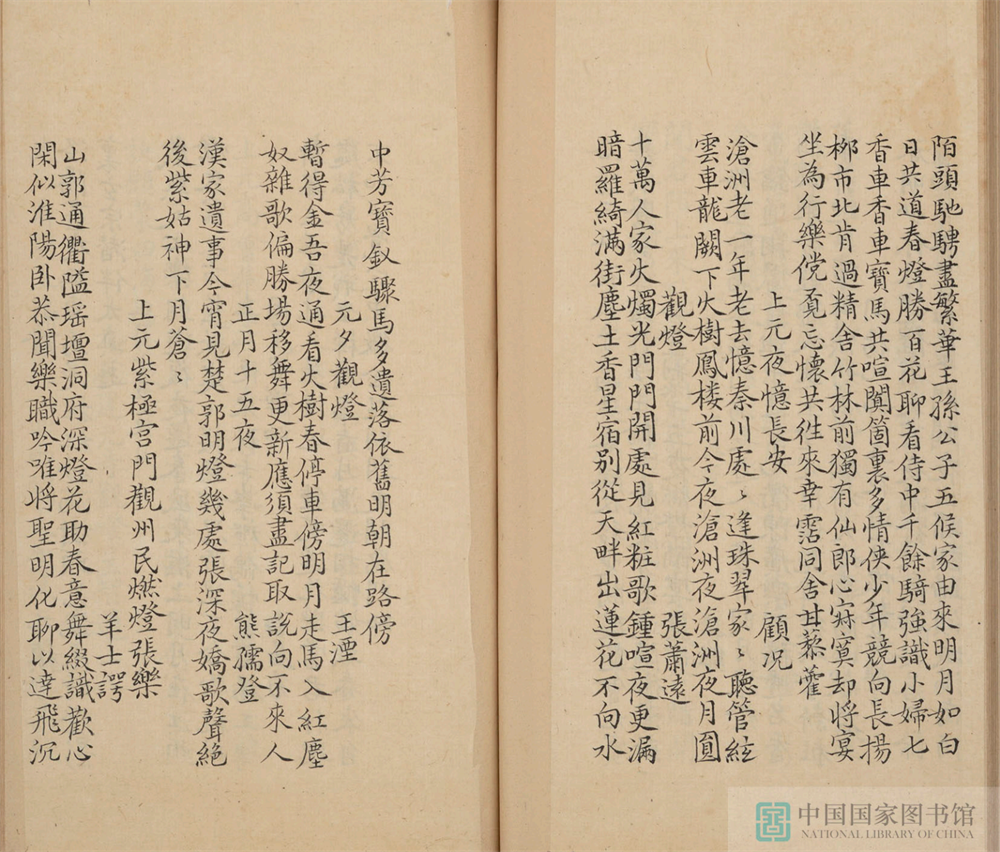 陌頭馳騁盡繁華王孫公子五候家由來明月如白
日共道春燈勝百花聊看侍中千餘騎強識小婦七
香車香車寶馬共喧闐箇裏多情俠少年競向長揚
栁市北肯過精舍竹林前獨有仙郎心寂寞却將宴
坐為行樂儻覔忘懷共徃來幸霑同舍甘藜藿
上元夜憶長安 顧况
滄洲老一年老去憶秦川處〻逢珠翠家〻聽管絃
雲車龍闕下火樹鳳楼前今夜滄洲夜滄洲夜月圎
觀燈 張蕭遠
十萬人家火燭光門門開處見紅粧歌鍾喧夜更漏
暗羅綺滿街塵土香星宿别從天畔出蓮花不向水
中芳寶釵驟馬多遺落依舊明朝在路傍
元夕觀燈 王湮
暫得金吾夜通看火樹春停車傍明月走馬入紅塵
奴雜歌偏勝場移舞更新應須盡記取說向不來人
正月十五夜 熊孺登
漢家遺事今宵見楚郭明燈幾處張深夜嬌歌聲絕
後紫姑神下月蒼〻
上元紫極宮門觀州民燃燈張樂
羊士諤
山郭通衢隘瑶壇洞府深燈花助春意舞綴識歡心
閑似淮陽卧恭聞樂職吟唯將聖明化聊以達飛沉
中国国家图书馆
NATIONAL LIBRARY OF CHINA